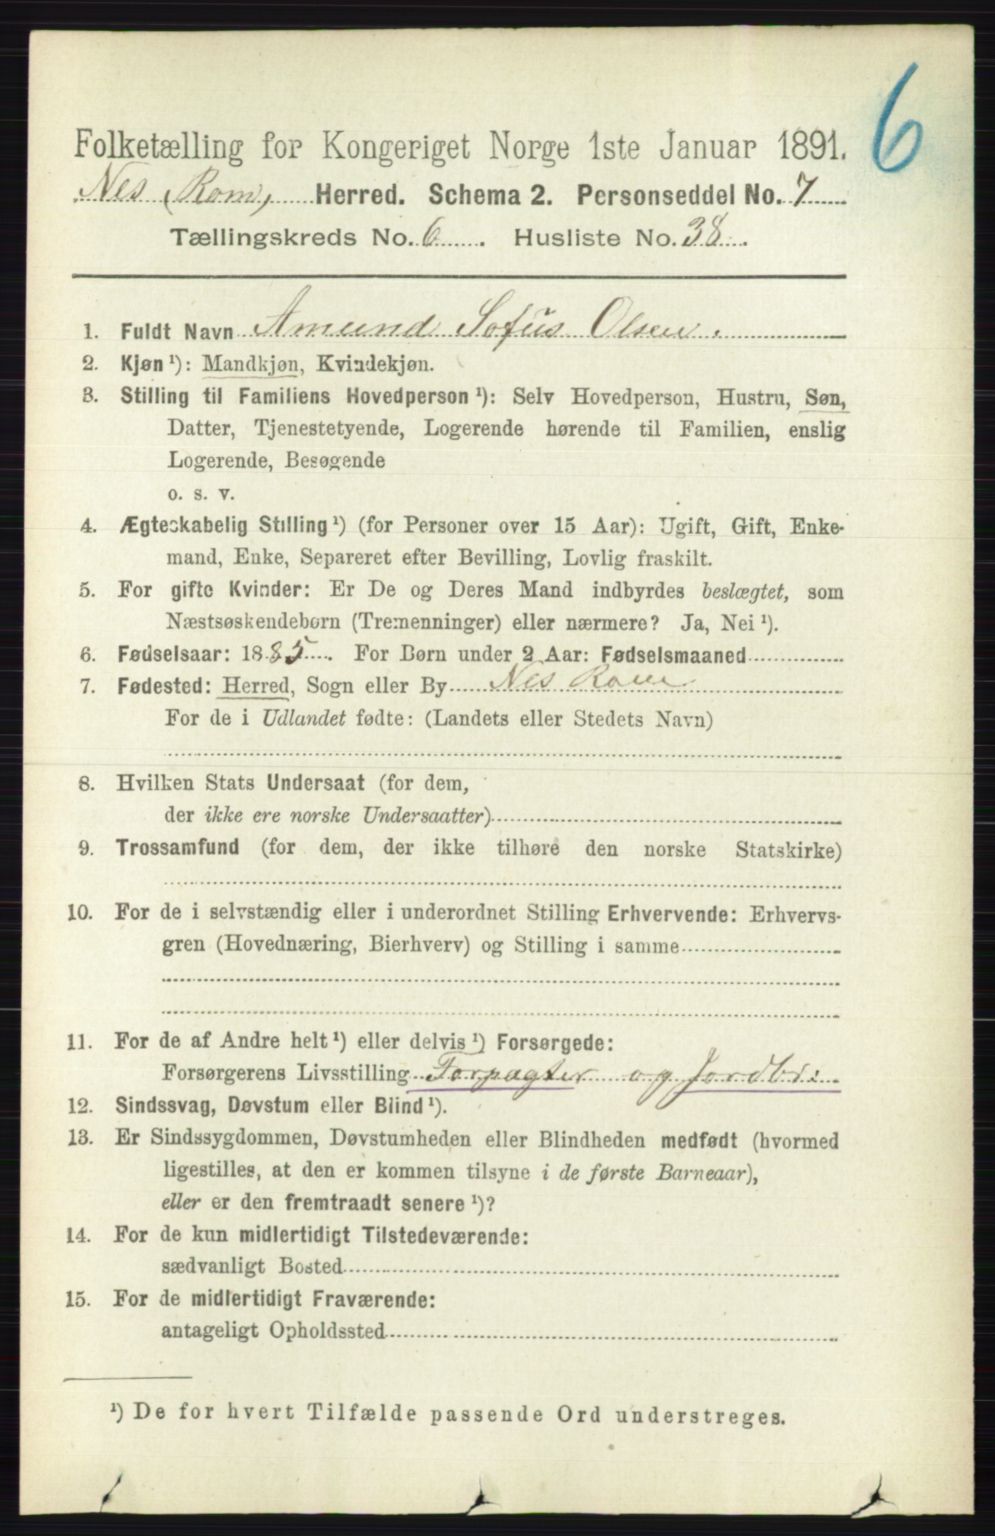 6
Folketælling for Kongeriget Norge 1ste Januar 1891.
Nes (Rom) Herred. Schema 2. Personseddel No. 7
Tællingskreds No. 6. Husliste No. 38.
1. Fuldt Navn Amund Sofus Olsen.
2. Kjøn ¹): Mandkjøn, Kvindekjøn.
3. Stilling til Familiens Hovedperson ¹): Selv Hovedperson, Hustru, Søn,
Datter, Tjenestetyende, Logerende hørende til Familien, enslig
Logerende, Besøgende
o. s. v.
4. Ægteskabelig Stilling ¹) (for Personer over 15 Aar): Ugift, Gift, Enke-
mand, Enke, Separeret efter Bevilling, Lovlig fraskilt.
5. For gifte Kvinder: Er De og Deres Mand indbyrdes beslægtet, som
Næstsøskendebørn (Tremenninger) eller nærmere? Ja, Nei ¹).
6. Fødselsaar: 1885. For Børn under 2 Aar: Fødselsmaaned
7. Fødested: Herred, Sogn eller By Nes Rom
For de i Udlandet fødte: (Landets eller Stedets Navn)
8. Hvilken Stats Undersaat (for dem,
der ikke ere norske Undersaatter)
9. Trossamfund (for dem, der ikke tilhøre den norske Statskirke)
10. For de i selvstændig eller i underordnet Stilling Erhvervende: Erhvervs-
gren (Hovednæring, Bierhverv) og Stilling i samme
11. For de af Andre helt ¹) eller delvis ¹) Forsørgede:
Forsørgerens Livsstilling Forpagter og Jordbr:
12. Sindssvag, Døvstum eller Blind ¹).
13. Er Sindssygdommen, Døvstumheden eller Blindheden medfødt (hvormed
ligestilles, at den er kommen tilsyne i de første Barneaar),
eller er den fremtraadt senere ¹)?
14. For de kun midlertidigt Tilstedeværende:
sædvanligt Bosted
15. For de midlertidigt Fraværende:
antageligt Opholdssted
¹) De for hvert Tilfælde passende Ord understreges.